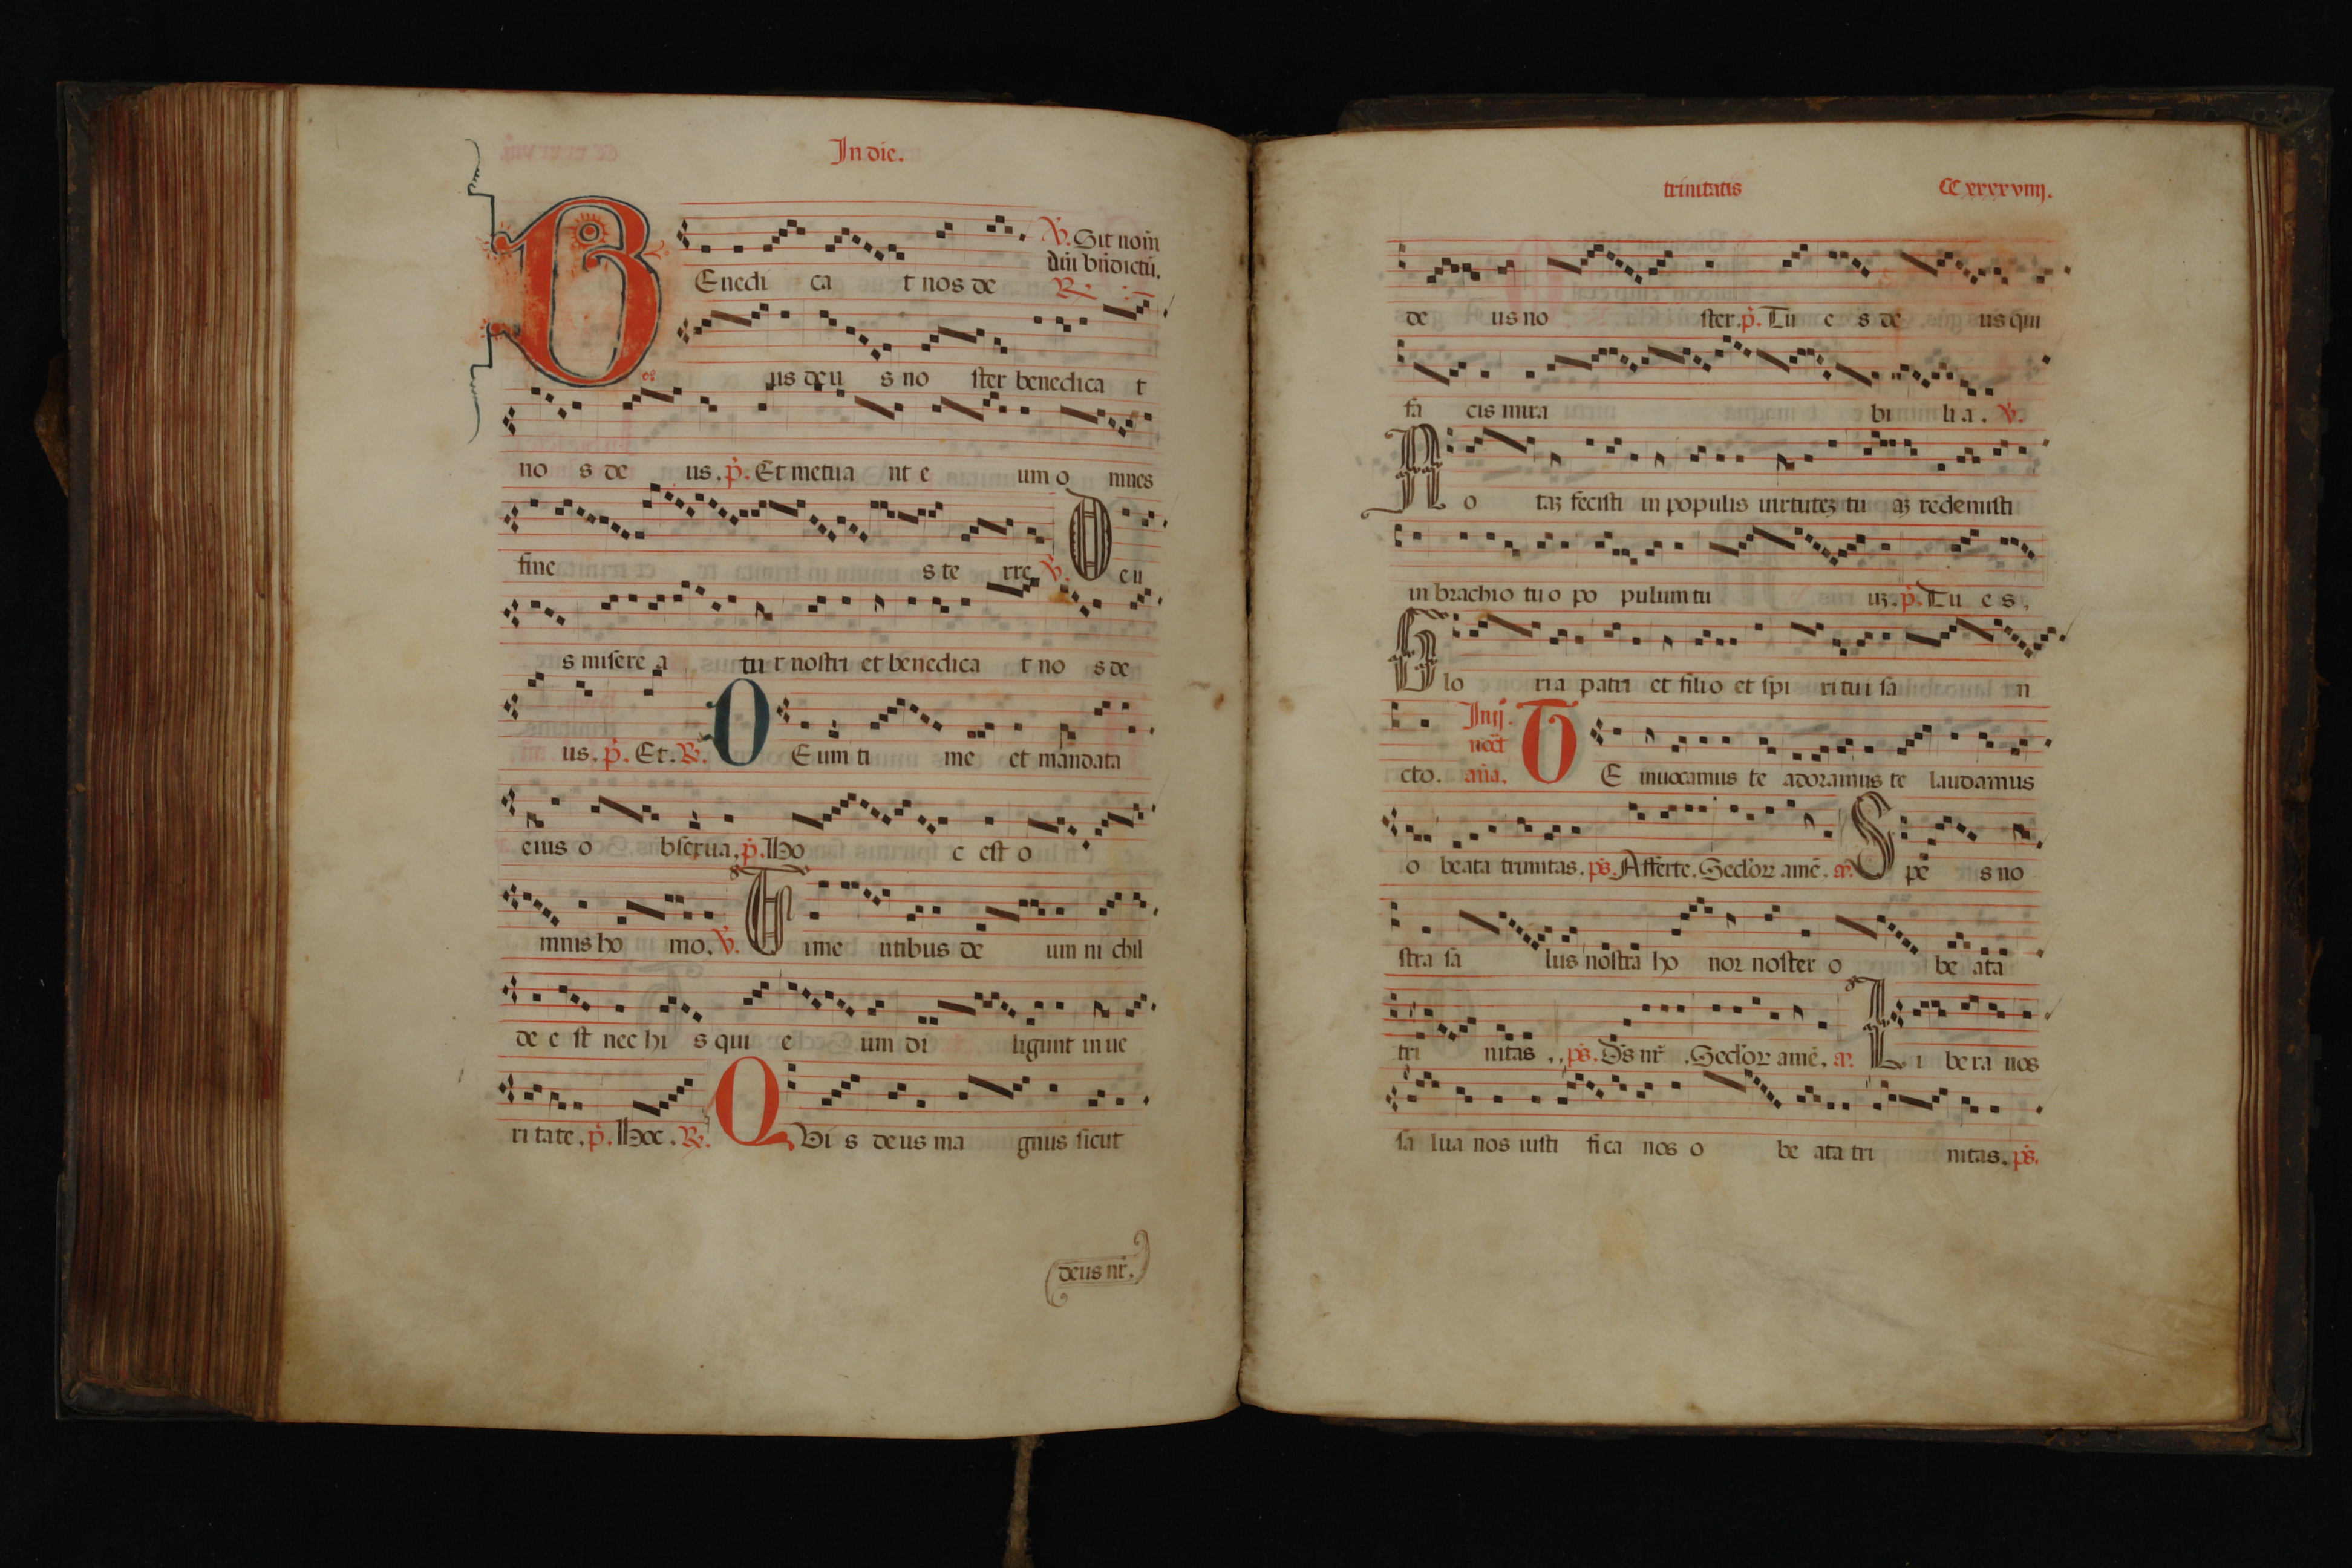 In die.
℣. Sit nom̄
dn̄i bn̄dictū.
BEnedi ca t nos de ℟.
us deu s no ster benedica t
no s de us. p̄. Et metua nt e um o mnes
fine s te rre ℣. Deu
s misere a tu r nostri et benedica t no s de
us. p̄. Et. ℟. DEum ti me et mandata
eius o bserua. p̄. Ho c est o
mnis ho mo. ℣. Time ntibus de um ni chil
de e st nec hi s qui e um di ligunt in ue
ri tate. p̄. Hoc. ℟. QVi s deus ma gnus sicut
deus nr̄.
trinitatis CCxxxxviiij.
de us no ster. p̄. Tu e s de us qui
fa cis mira bi li a. ℣.
No taʒ fecisti in populis uirtuteʒ tu aʒ redemisti
in brachio tuo po pulum tu uʒ. p̄. Tu e s.
Glo ria patri et filio et spi ritui sa n
cto. In iij. noct̄ an̄a. TE inuocamus te adoramus te laudamus
o beata trinitas. ps̄. Afferte. Sc̄lorꝝ amē. a. Spe s no
stra sa lus nostra ho nor noster o be ata
tri nitas. ps̄. Ds̄ nr̄. Sc̄lorꝝ amē. a. Li bera nos
sa lua nos iusti fica nos o be ata tri nitas. ps̄.